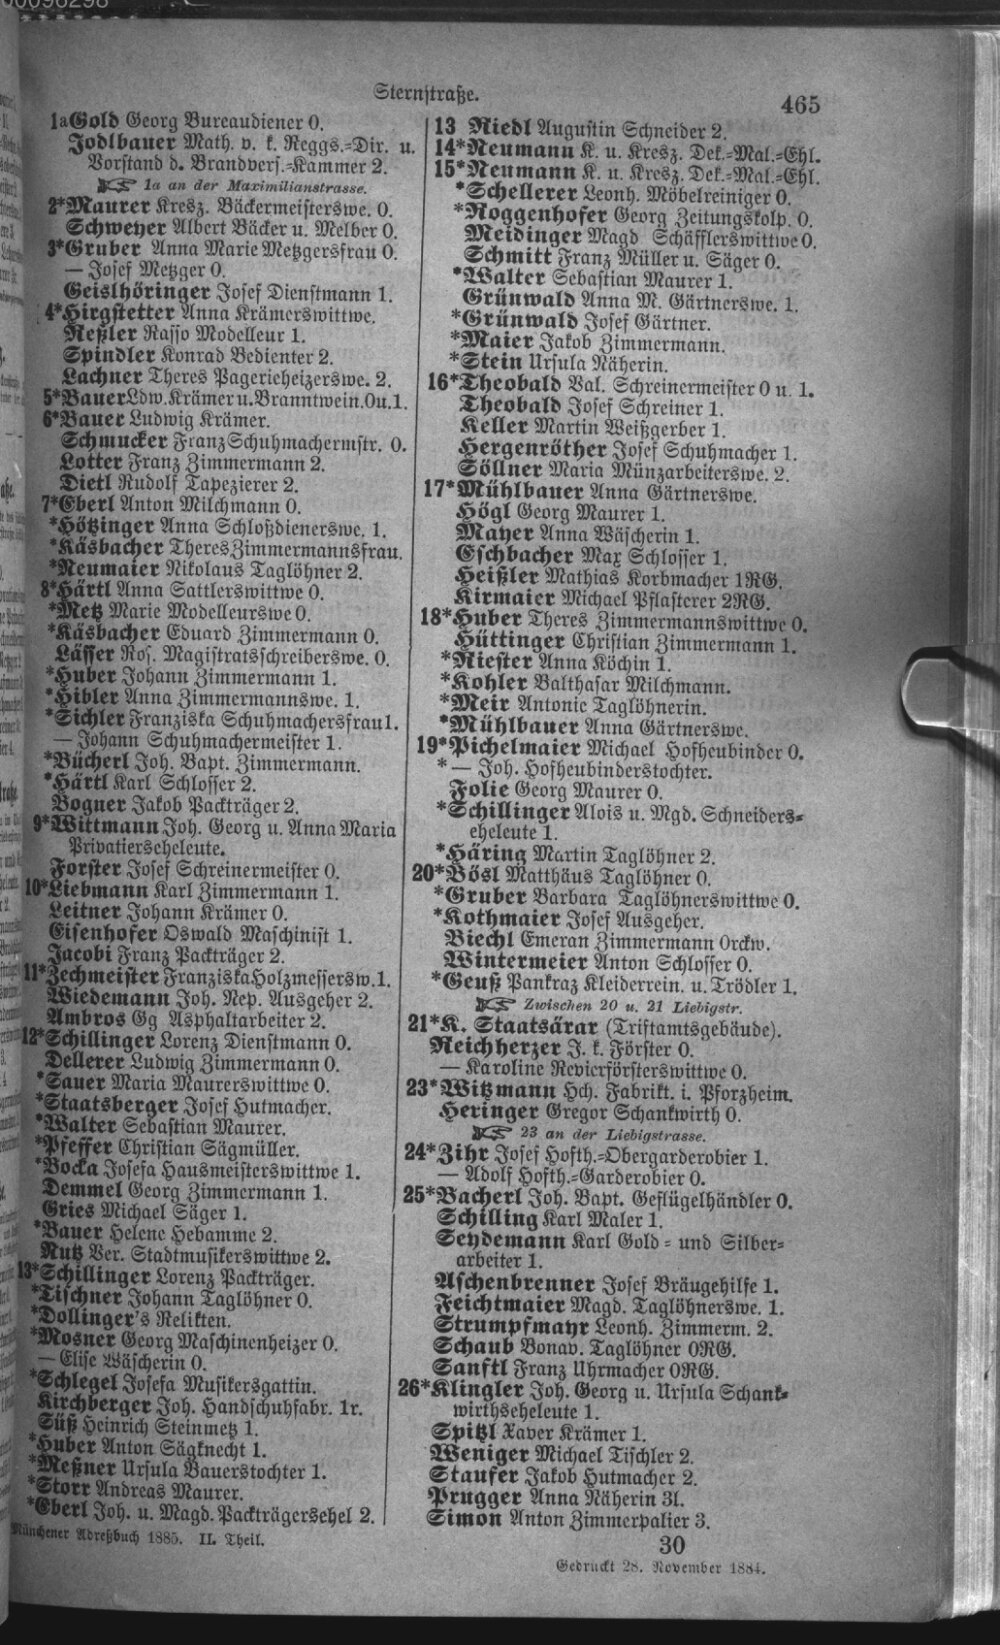 00096298
Sternstraße.
465
1a Gold Georg Bureaudiener 0.
Jodlbauer Math. v. k. Reggs.=Dir. u.
Vorstand d. Brandvers.=Kammer 2.
☞ 1a an der Maximilianstrasse.
2*Maurer Kresz. Bäckermeisterswe. 0.
Schweyer Albert Bäcker u. Melber 0.
3*Gruber Anna Marie Metzgersfrau 0.
— Josef Metzger 0.
Geislhöringer Josef Dienstmann 1.
4*Hirgstetter Anna Krämerswittwe.
Reßler Rasso Modelleur 1.
Spindler Konrad Bedienter 2.
Lachner Theres Pagerieheizerswe. 2.
5*Bauer Ldw. Krämer u. Branntwein. 0 u. 1.
6*Bauer Ludwig Krämer.
Schmucker Franz Schuhmachermstr. 0.
Lotter Franz Zimmermann 2.
Dietl Rudolf Tapezierer 2.
7*Eberl Anton Milchmann 0.
*Hötzinger Anna Schloßdienerswe. 1.
*Käsbacher Theres Zimmermannsfrau.
*Neumaier Nikolaus Taglöhner 2.
8*Härtl Anna Sattlerswittwe 0.
*Metz Marie Modelleurswe 0.
*Käsbacher Eduard Zimmermann 0.
Lässer Ros. Magistratsschreiberswe. 0.
*Huber Johann Zimmermann 1.
*Hibler Anna Zimmermannswe. 1.
*Sichler Franziska Schuhmachersfrau 1.
— Johann Schuhmachermeister 1.
*Bücherl Joh. Bapt. Zimmermann.
*Härtl Karl Schlosser 2.
Bogner Jakob Packträger 2.
9*Wittmann Joh. Georg u. Anna Maria
Privatierseheleute.
Forster Josef Schreinermeister 0.
10*Liebmann Karl Zimmermann 1.
Leitner Johann Krämer 0.
Eisenhofer Oswald Maschinist 1.
Jacobi Franz Packträger 2.
11*Zechmeister Franziska Holzmessersw. 1.
Wiedemann Joh. Nep. Ausgeher 2.
Ambros Gg Asphaltarbeiter 2.
12*Schillinger Lorenz Dienstmann 0.
Dellerer Ludwig Zimmermann 0.
*Sauer Maria Maurerswittwe 0.
*Staatsberger Josef Hutmacher.
*Walter Sebastian Maurer.
*Pfeffer Christian Sägmüller.
*Bocka Josefa Hausmeisterswittwe 1.
Demmel Georg Zimmermann 1.
Gries Michael Säger 1.
*Bauer Helene Hebamme 2.
Rutz Ver. Stadtmusikerswittwe 2.
13*Schillinger Lorenz Packträger.
*Tischner Johann Taglöhner 0.
*Dollinger's Relikten.
*Mosner Georg Maschinenheizer 0.
— Elise Wäscherin 0.
*Schlegel Josefa Musikersgattin.
Kirchberger Joh. Handschuhfabr. 1r.
Süß Heinrich Steinmetz 1.
*Huber Anton Sägknecht 1.
*Meßner Ursula Bauerstochter 1.
*Storr Andreas Maurer.
*Eberl Joh. u. Magd. Packträgersehel 2.
Münchener Adreßbuch 1885. II. Theil.
13 Riedl Augustin Schneider 2.
14*Neumann K. u. Kresz. Dek.=Mal.=Ehl.
15*Neumann K. u. Kresz. Dek.=Mal.=Ehl.
*Schellerer Leonh. Möbelreiniger 0.
*Roggenhofer Georg Zeitungskolp. 0.
Meidinger Magd Schäfflerswittwe 0.
Schmitt Franz Müller u. Säger 0.
*Walter Sebastian Maurer 1.
Grünwald Anna M. Gärtnerswe. 1.
*Grünwald Josef Gärtner.
*Maier Jakob Zimmermann.
*Stein Ursula Näherin.
16*Theobald Val. Schreinermeister 0 u. 1.
Theobald Josef Schreiner 1.
Keller Martin Weißgerber 1.
Hergenröther Josef Schuhmacher 1.
Söllner Maria Münzarbeiterswe. 2.
17*Mühlbauer Anna Gärtnerswe.
Högl Georg Maurer 1.
Mayer Anna Wäscherin 1.
Eschbacher Max Schlosser 1.
Heißler Mathias Korbmacher 1RG.
Kirmaier Michael Pflasterer 2RG.
18*Huber Theres Zimmermannswittwe 0.
Hüttinger Christian Zimmermann 1.
*Riester Anna Köchin 1.
*Kohler Balthasar Milchmann.
*Meir Antonie Taglöhnerin.
*Mühlbauer Anna Gärtnerswe.
19*Pichelmaier Michael Hofheubinder 0.
* — Joh. Hofheubinderstochter.
Folie Georg Maurer 0.
*Schillinger Alois u. Mgd. Schneiders=
eheleute 1.
*Häring Martin Taglöhner 2.
20*Bösl Matthäus Taglöhner 0.
*Gruber Barbara Taglöhnerswittwe 0.
*Kothmaier Josef Ausgeher.
Biechl Emeran Zimmermann 0rckw.
Wintermeier Anton Schlosser 0.
*Geuß Pankraz Kleiderrein. u. Trödler 1.
☞ Zwischen 20 u. 21 Liebigstr.
21*K. Staatsärar (Triftamtsgebäude).
Reichherzer J. k. Förster 0.
— Karoline Revierförsterswittwe 0.
23*Witzmann Hch. Fabrikt. i. Pforzheim.
Heringer Gregor Schankwirth 0.
☞ 23 an der Liebigstrasse.
24*Zihr Josef Hofth.=Obergarderobier 1.
— Adolf Hofth.=Garderobier 0.
25*Bacherl Joh. Bapt. Geflügelhändler 0.
Schilling Karl Maler 1.
Seydemann Karl Gold= und Silber=
arbeiter 1.
Aschenbrenner Josef Bräugehilfe 1.
Feichtmaier Magd. Taglöhnerswe. 1.
Strumpfmayr Leonh. Zimmerm. 2.
Schaub Bonav. Taglöhner 0RG.
Sanftl Franz Uhrmacher 0RG.
26*Klingler Joh. Georg u. Ursula Schank=
wirthseheleute 1.
Spitzl Xaver Krämer 1.
Weniger Michael Tischler 2.
Staufer Jakob Hutmacher 2.
Prugger Anna Näherin 3l.
Simon Anton Zimmerpalier 3.
30
Gedruckt 28. November 1884.